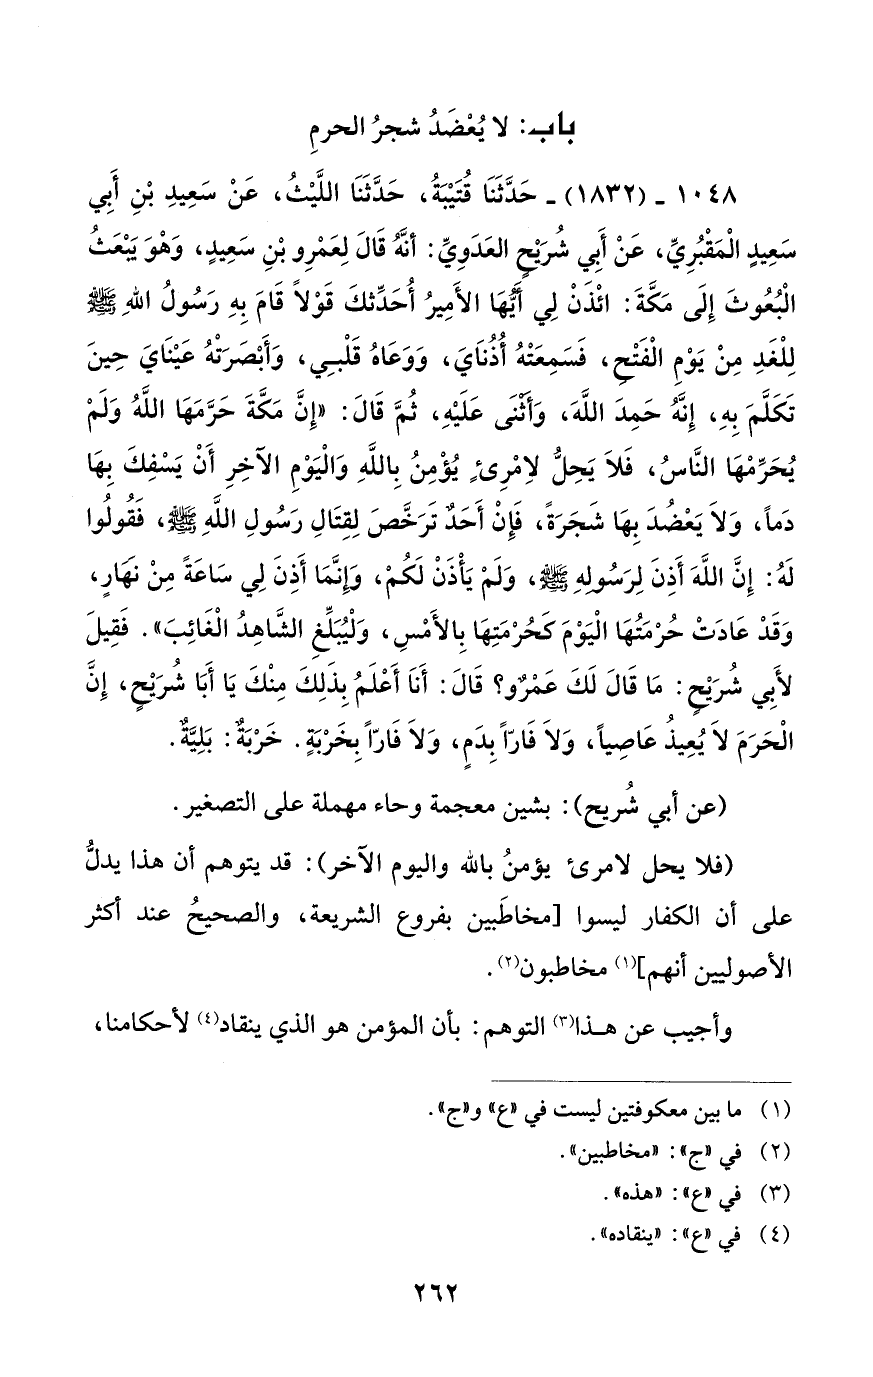 باب: لا يُعْضَدُ شجرُ الحرمِ
١٠٤٨ ـ (١٨٣٢) ـ حَدَّثَنَا قُتَيْبَةُ، حَدَّثَنَا اللَّيْثُ، عَنْ سَعِيدِ بْنِ أَبِي
سَعِيدٍ الْمَقْبُرِيِّ، عَنْ أَبِي شُرَيْحٍ العَدَوِيِّ: أنَّهُ قَالَ لِعَمْرِو بْنِ سَعِيدٍ، وَهْوَ يَبْعَثُ
الْبُعُوثَ إِلَى مَكَّةَ: ائْذَنْ لِي أَيُّهَا الأَمِيرُ أُحَدِّثكَ قَوْلاً قَامَ بِهِ رَسُولُ اللهِ ﷺ
لِلْغَدِ مِنْ يَوْمِ الْفَتْحِ، فَسَمِعَتْهُ أُذُنَايَ، وَوَعَاهُ قَلْبِي، وَأَبْصَرَتْهُ عَيْنَايَ حِينَ
تَكَلَّمَ بِهِ، إِنَّهُ حَمِدَ اللَّهَ، وَأَثْنَى عَلَيْهِ، ثُمَّ قَالَ: «إِنَّ مَكَّةَ حَرَّمَهَا اللَّهُ وَلَمْ
يُحَرِّمْهَا النَّاسُ، فَلاَ يَحِلُّ لاِمْرِئٍ يُؤْمِنُ بِاللَّهِ وَالْيَوْمِ الآخِرِ أَنْ يَسْفِكَ بِهَا
دَماً، وَلاَ يَعْضُدَ بِهَا شَجَرَةً، فَإِنْ أَحَدٌ تَرَخَّصَ لِقِتَالِ رَسُولِ اللَّهِ ﷺ، فَقُولُوا
لَهُ: إِنَّ اللَّهَ أَذِنَ لِرَسُولِهِ ﷺ، وَلَمْ يَأْذَنْ لَكُمْ، وَإِنَّمَا أَذِنَ لِي سَاعَةً مِنْ نَهَارٍ،
وَقَدْ عَادَتْ حُرْمَتُهَا الْيَوْمَ كَحُرْمَتِهَا بِالأَمْسِ، وَلْيُبَلِّغِ الشَّاهِدُ الْغَائِبَ». فَقِيلَ
لأَبِي شُرَيْحٍ: مَا قَالَ لَكَ عَمْرٌو؟ قَالَ: أَنَا أَعْلَمُ بِذَلِكَ مِنْكَ يَا أَبَا شُرَيْحٍ، إِنَّ
الْحَرَمَ لاَ يُعِيذُ عَاصِياً، وَلاَ فَارّاً بِدَمٍ، وَلاَ فَارّاً بِخَرْبَةٍ. خَرْبَةٌ: بَلِيَّةٌ.
(عن أبي شُريح): بشين معجمة وحاء مهملة على التصغير.
(فلا يحل لامرئ يؤمنُ بالله واليوم الآخر): قد يتوهم أن هذا يدلُّ
على أن الكفار ليسوا [مخاطَبين بفروع الشريعة، والصحيحُ عند أكثر
الأصوليين أنهم](١) مخاطبون(٢).
وأجيب عن هـذا(٣) التوهم: بأن المؤمن هو الذي ينقاد(٤) لأحكامنا،
(١) ما بين معكوفتين ليست في «ع» و«ج».
(٢) في «ج»: «مخاطبين».
(٣) في «ع»: «هذه».
(٤) في «ع»: «ينقاده».
٢٦٢